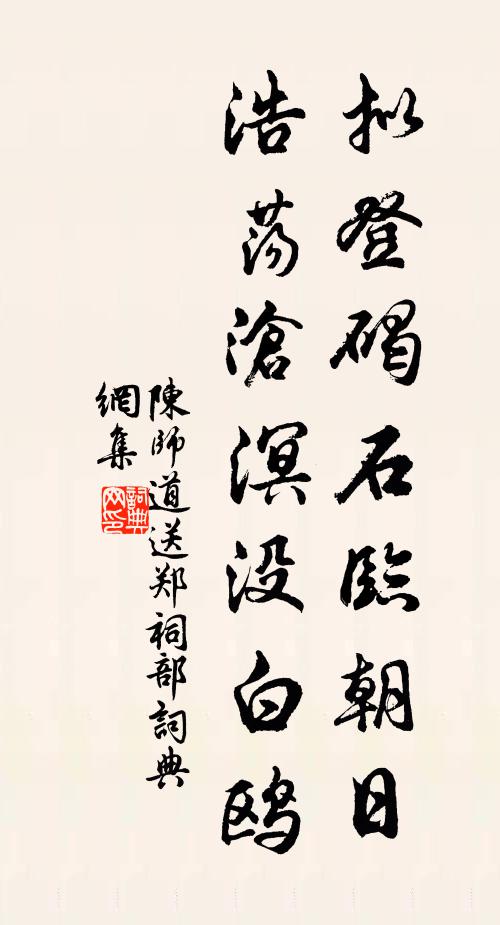 拟登碣石臨朝日
浩荡滄溟没白鸥
陳師道送郑祠部詞典
網集
詞典
网印